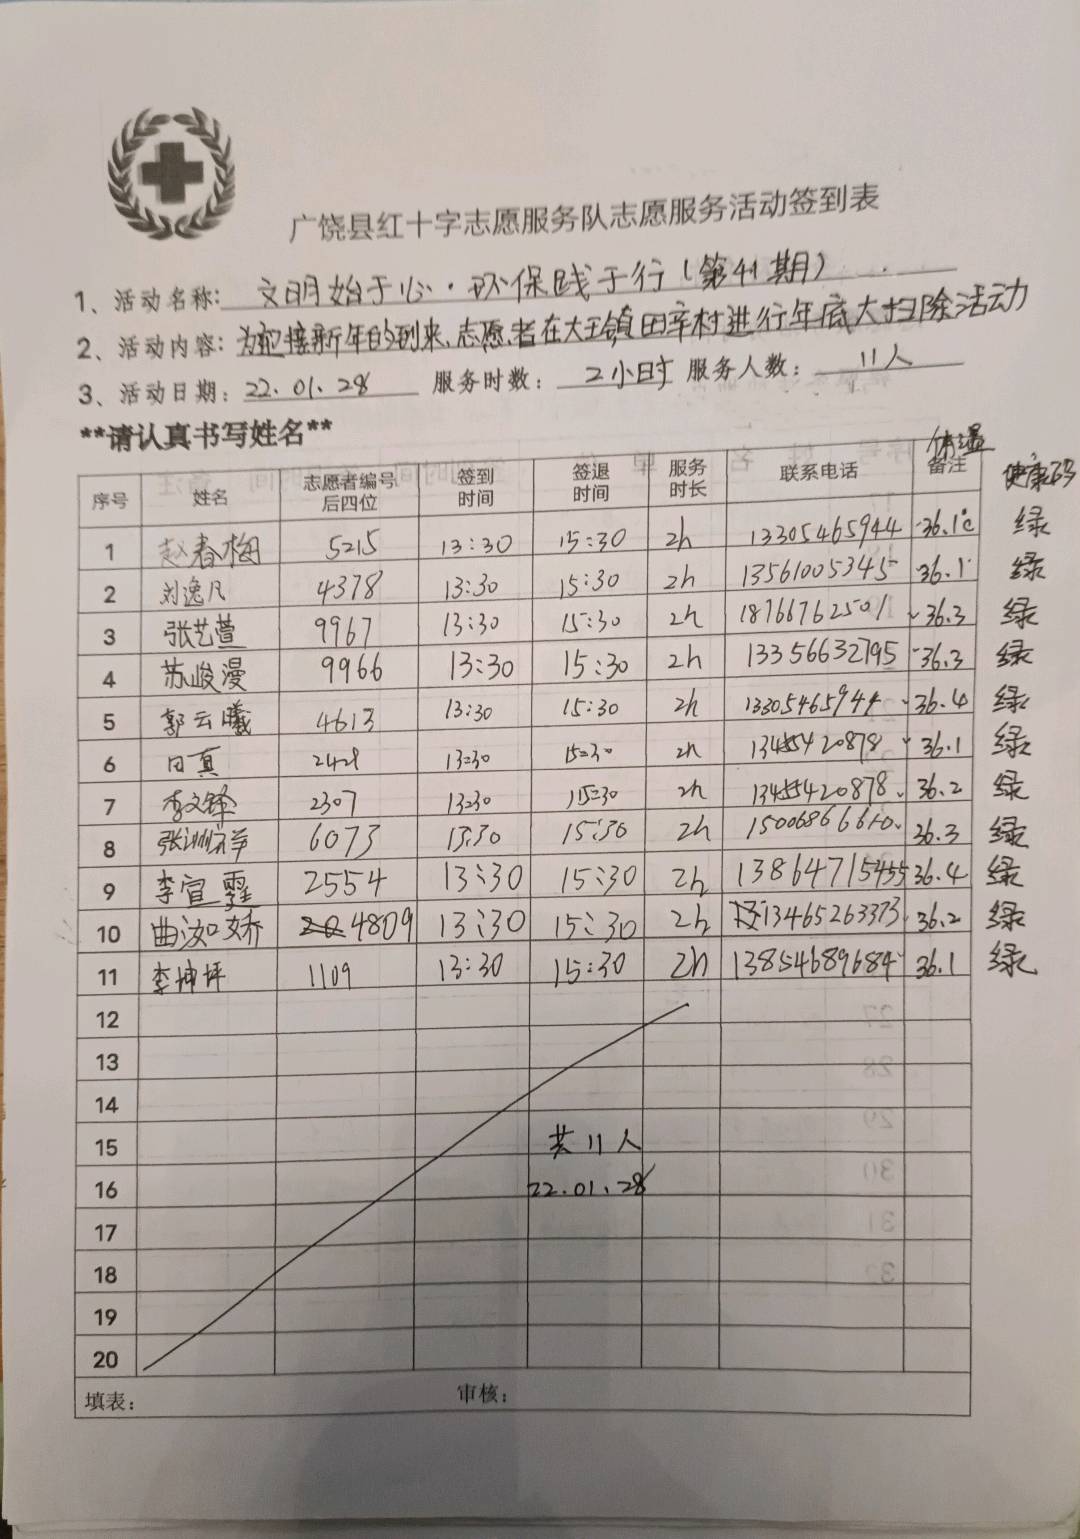 广饶县红十字志愿服务队志愿服务活动签到表
1、活动名称: 文明始于心·环保践于行(第41期)
2、活动内容: 为迎接新年的到来,志愿者在大王镇田辛村进行年底大扫除活动
3、活动日期: 22.01.28 服务时数: 2小时 服务人数: 11人
**请认真书写姓名**
序号 姓名 志愿者编号后四位 签到时间 签退时间 服务时长 联系电话 备注 体温 健康码
1 赵春梅 5215 13:30 15:30 2h 13305465944 36.1℃ 绿
2 刘逸凡 4378 13:30 15:30 2h 13561005345 36.1 绿
3 张艺萱 9967 13:30 15:30 2h 18766762501 36.3 绿
4 苏峻漫 9966 13:30 15:30 2h 13356632795 36.3 绿
5 郭云曦 4613 13:30 15:30 2h 13305465944 36.4 绿
6 真 2428 13:30 15:30 2h 13455420878 36.1 绿
7 李文锋 2307 13:30 15:30 2h 13455420878 36.2 绿
8 张 祥 6073 13:30 15:30 2h 36.3 绿
9 李宣霆 2554 13:30 15:30 2h 13864715455 36.4 绿
10 曲汝娇 4809 13:30 15:30 2h 13465263373 36.2 绿
11 李坤坪 1109 13:30 15:30 2h 13854689684 36.1 绿
12
13
14
15 共11人
16 22.01.28
17
18
19
20
填表: 审核: